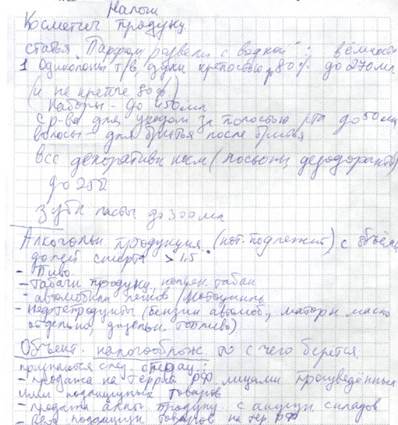 Налоги
Косметич продукц
ставя. Парфюм развели с водкой": в ёмкости
1 Односпопн т/в духи крепостью 80% до 270мл
(и не крепче 80%)
Наборы - до 450мл
Ср-ва для ухода за полостью рта до 50мл
волосы - для бритья после бритья
все декоративн косм (лосьоны дезодорантов)
до 250
зубн пасты до 300мл
Алкогольн продукция (кот. подлежит) с объём
долей спирта > 1,5.
- Пиво
- Табачн продукц,
- автомобили легков (мотоциклы
- Нефтепродукты (бензин автомоб, моторн масло
отдельно, дизельн топливо)
Объект налогооблож то с чего берется
признаются след. операц:
- продажа на террит РФ лицами произведённых
ими подакцизных товаров
- продажа алког продукц с акцизн складов
подакцизн товаров на тер. РФ